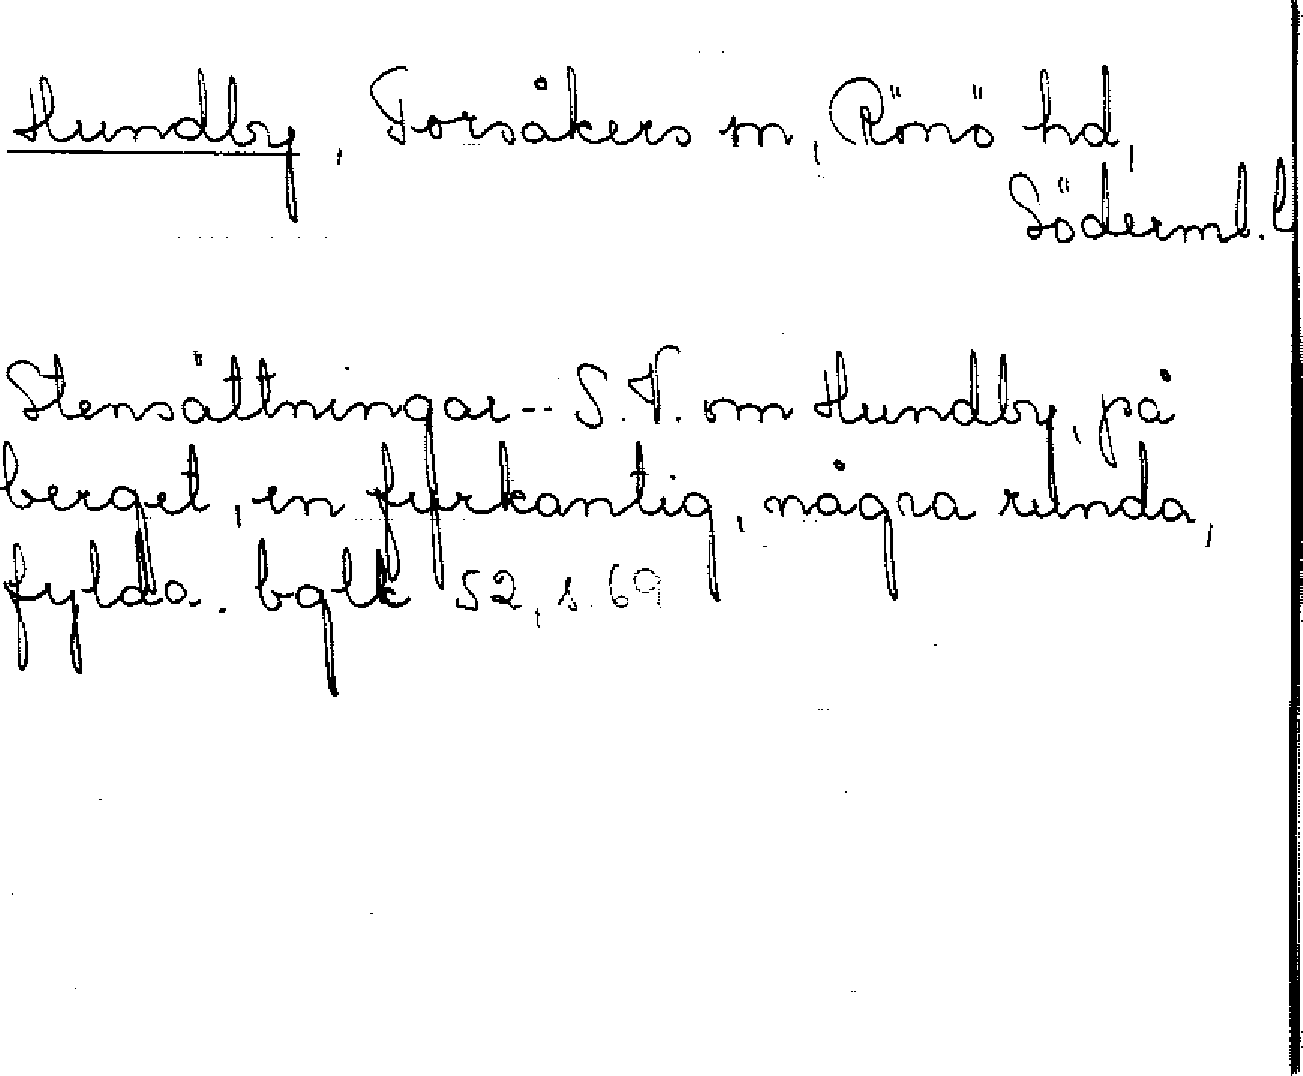 Hundby, Torsåkers sn, Rönö hd,
Söderml. l
Stensättningar -- S.V. om Hundby, på
berget, en fyrkantig, några runda,
fylda. bglk 52, s. 69